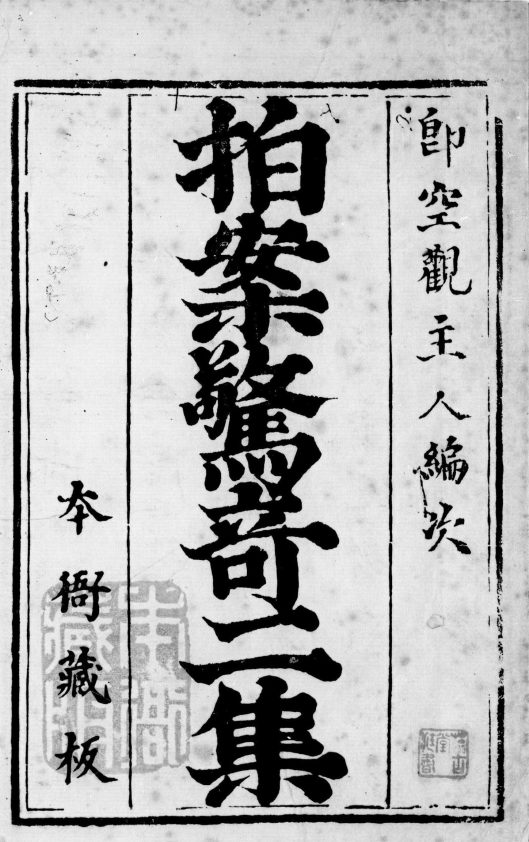 即空觀主人編次
拍案驚奇二集
本衙藏板